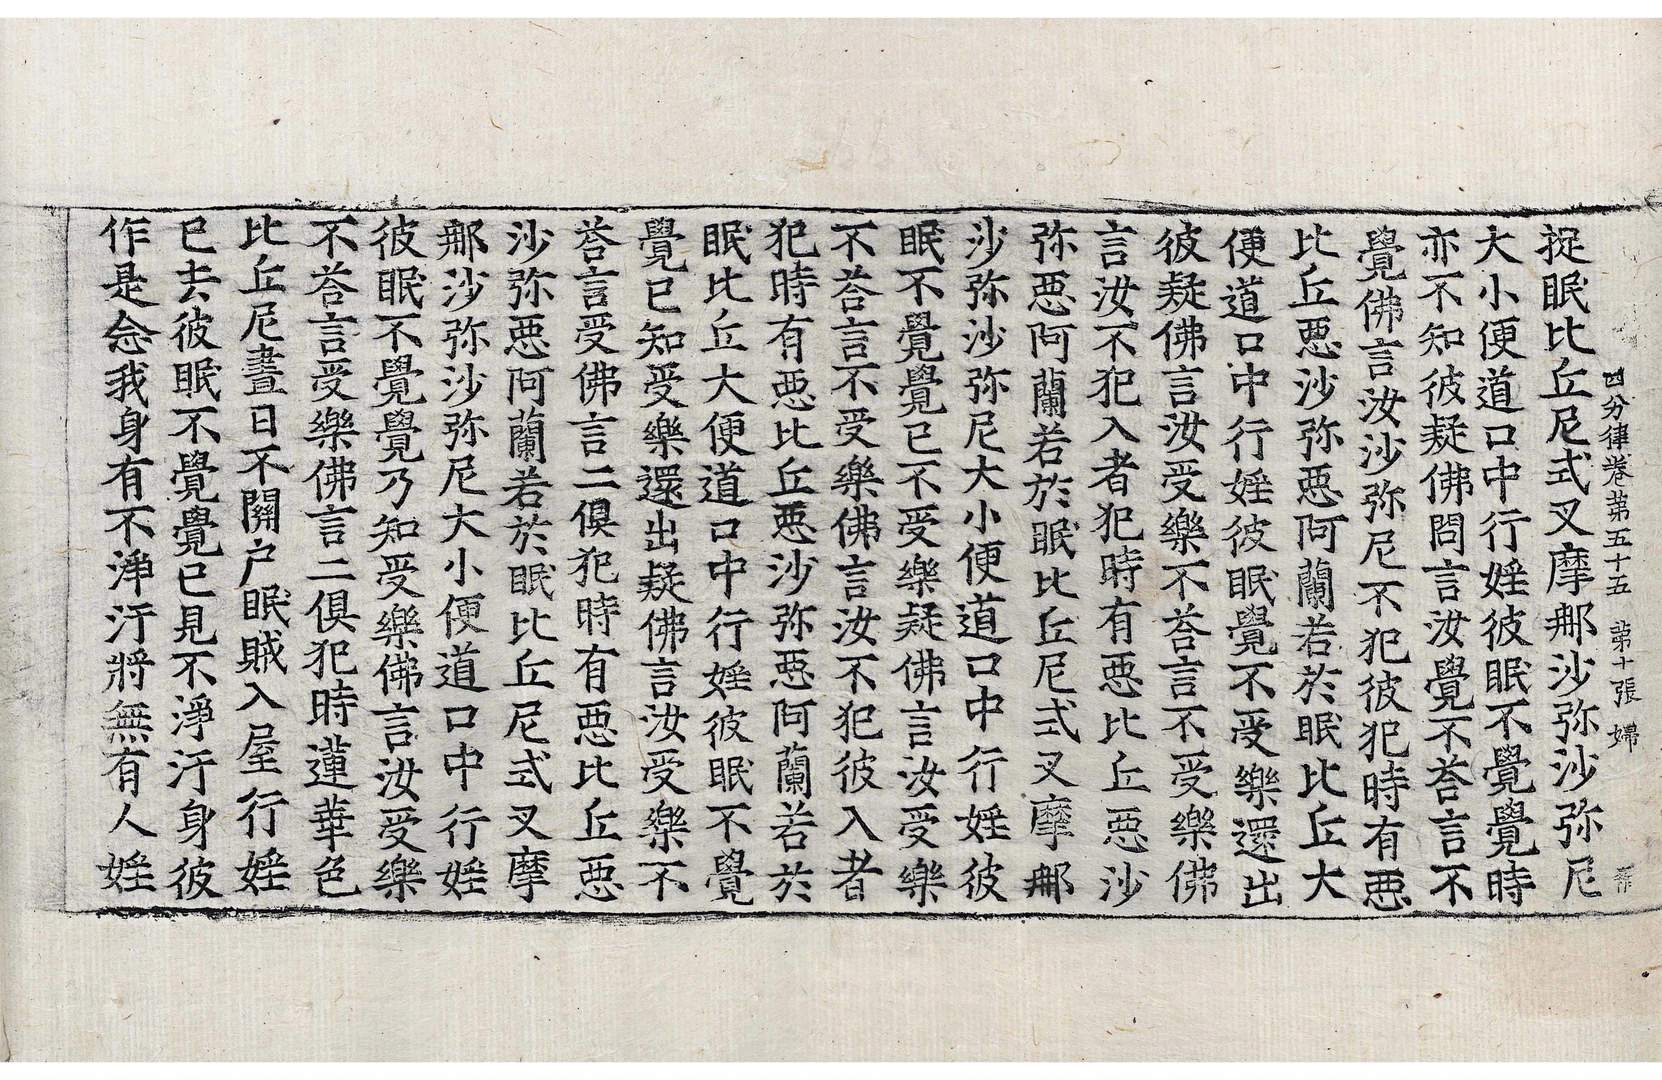 四分律卷第五十五 第十張 婦
捉眠比丘尼式叉摩那沙弥沙弥尼
大小便道口中行婬彼眠不覺覺時
亦不知彼疑佛問言汝覺不荅言不
覺佛言汝沙弥尼不犯彼犯時有惡
比丘惡沙弥惡阿蘭若於眠比丘大
便道口中行婬彼眠覺不受樂還出
彼疑佛言汝受樂不荅言不受樂佛
言汝不犯入者犯時有惡比丘惡沙
弥惡阿蘭若於眠比丘尼式叉摩那
沙弥沙弥尼大小便道口中行婬彼
眠不覺覺已不受樂疑佛言汝受樂
不荅言不受樂佛言汝不犯彼入者
犯時有惡比丘惡沙弥惡阿蘭若於
眠比丘大便道口中行婬彼眠不覺
覺已知受樂還出疑佛言汝受樂不
荅言受佛言二俱犯時有惡比丘惡
沙弥惡阿蘭若於眠比丘尼式叉摩
那沙弥沙弥尼大小便道口中行婬
彼眠不覺覺乃知受樂佛言汝受樂
不荅言受樂佛言二俱犯時蓮華色
比丘尼晝日不關户眠賊入屋行婬
已去彼眠不覺覺已見不淨汙身彼
作是念我身有不淨汙將無有人婬